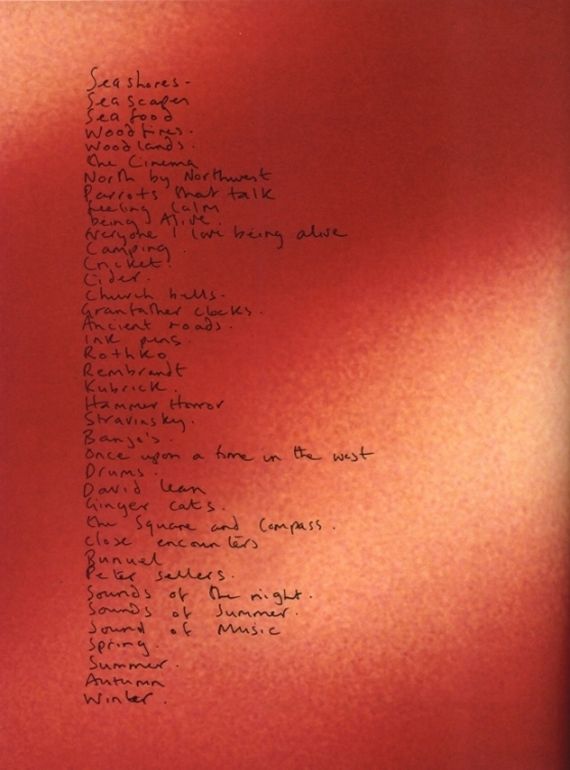 Seashores-
Seascapes
Seafood
Woodfires.
Woodlands.
the Cinema
North by Northwest
Parrots that talk
feeling Calm
being Alive.
Everyone I love being alive
Camping.
Cricket.
Cider.
Church bells.
Granfather clocks.
Ancient roads.
Ink pens.
Rothko
Rembrandt
Kubrick.
Hammer Horror
Stravinsky.
Banjo's.
Once upon a time in the west
Drums.
David Lean
Ginger cats.
the Square and Compass.
Close encounters
Bunuel
Peter Sellers.
Sounds of the night.
Sounds of Summer.
Sound of Music
Spring.
Summer.
Autumn
Winter.